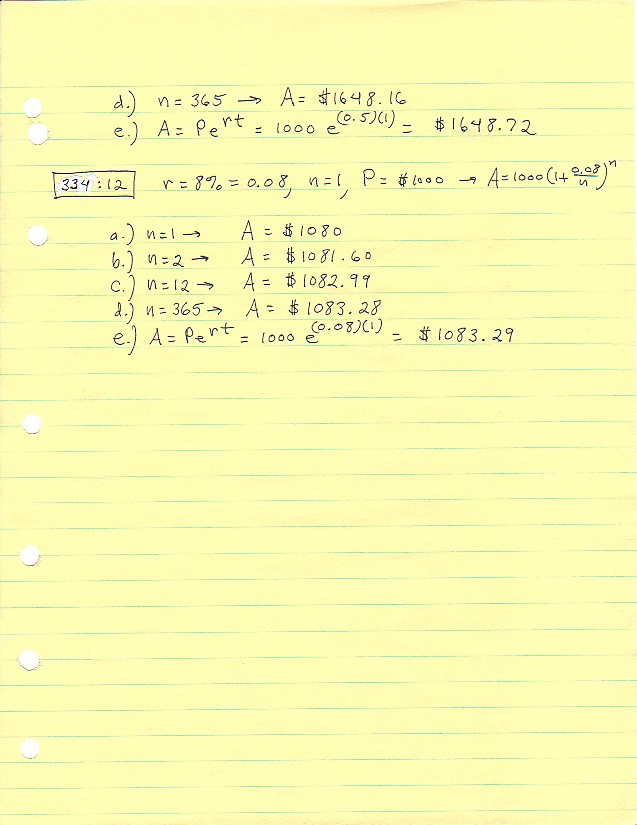 d.) n = 365 → A = $1648.16
e.) A = Pe^rt = 1000 e^(0.5)(1) = $1648.72
334:12 r = 8% = 0.08, n=1, P = $1000 → A=1000(1+0.08/n)^n
a.) n=1 → A = $1080
b.) n=2 → A = $1081.60
c.) n=12 → A = $1082.99
d.) n=365 → A = $1083.28
e.) A = Pe^rt = 1000 e^(0.08)(1) = $1083.29